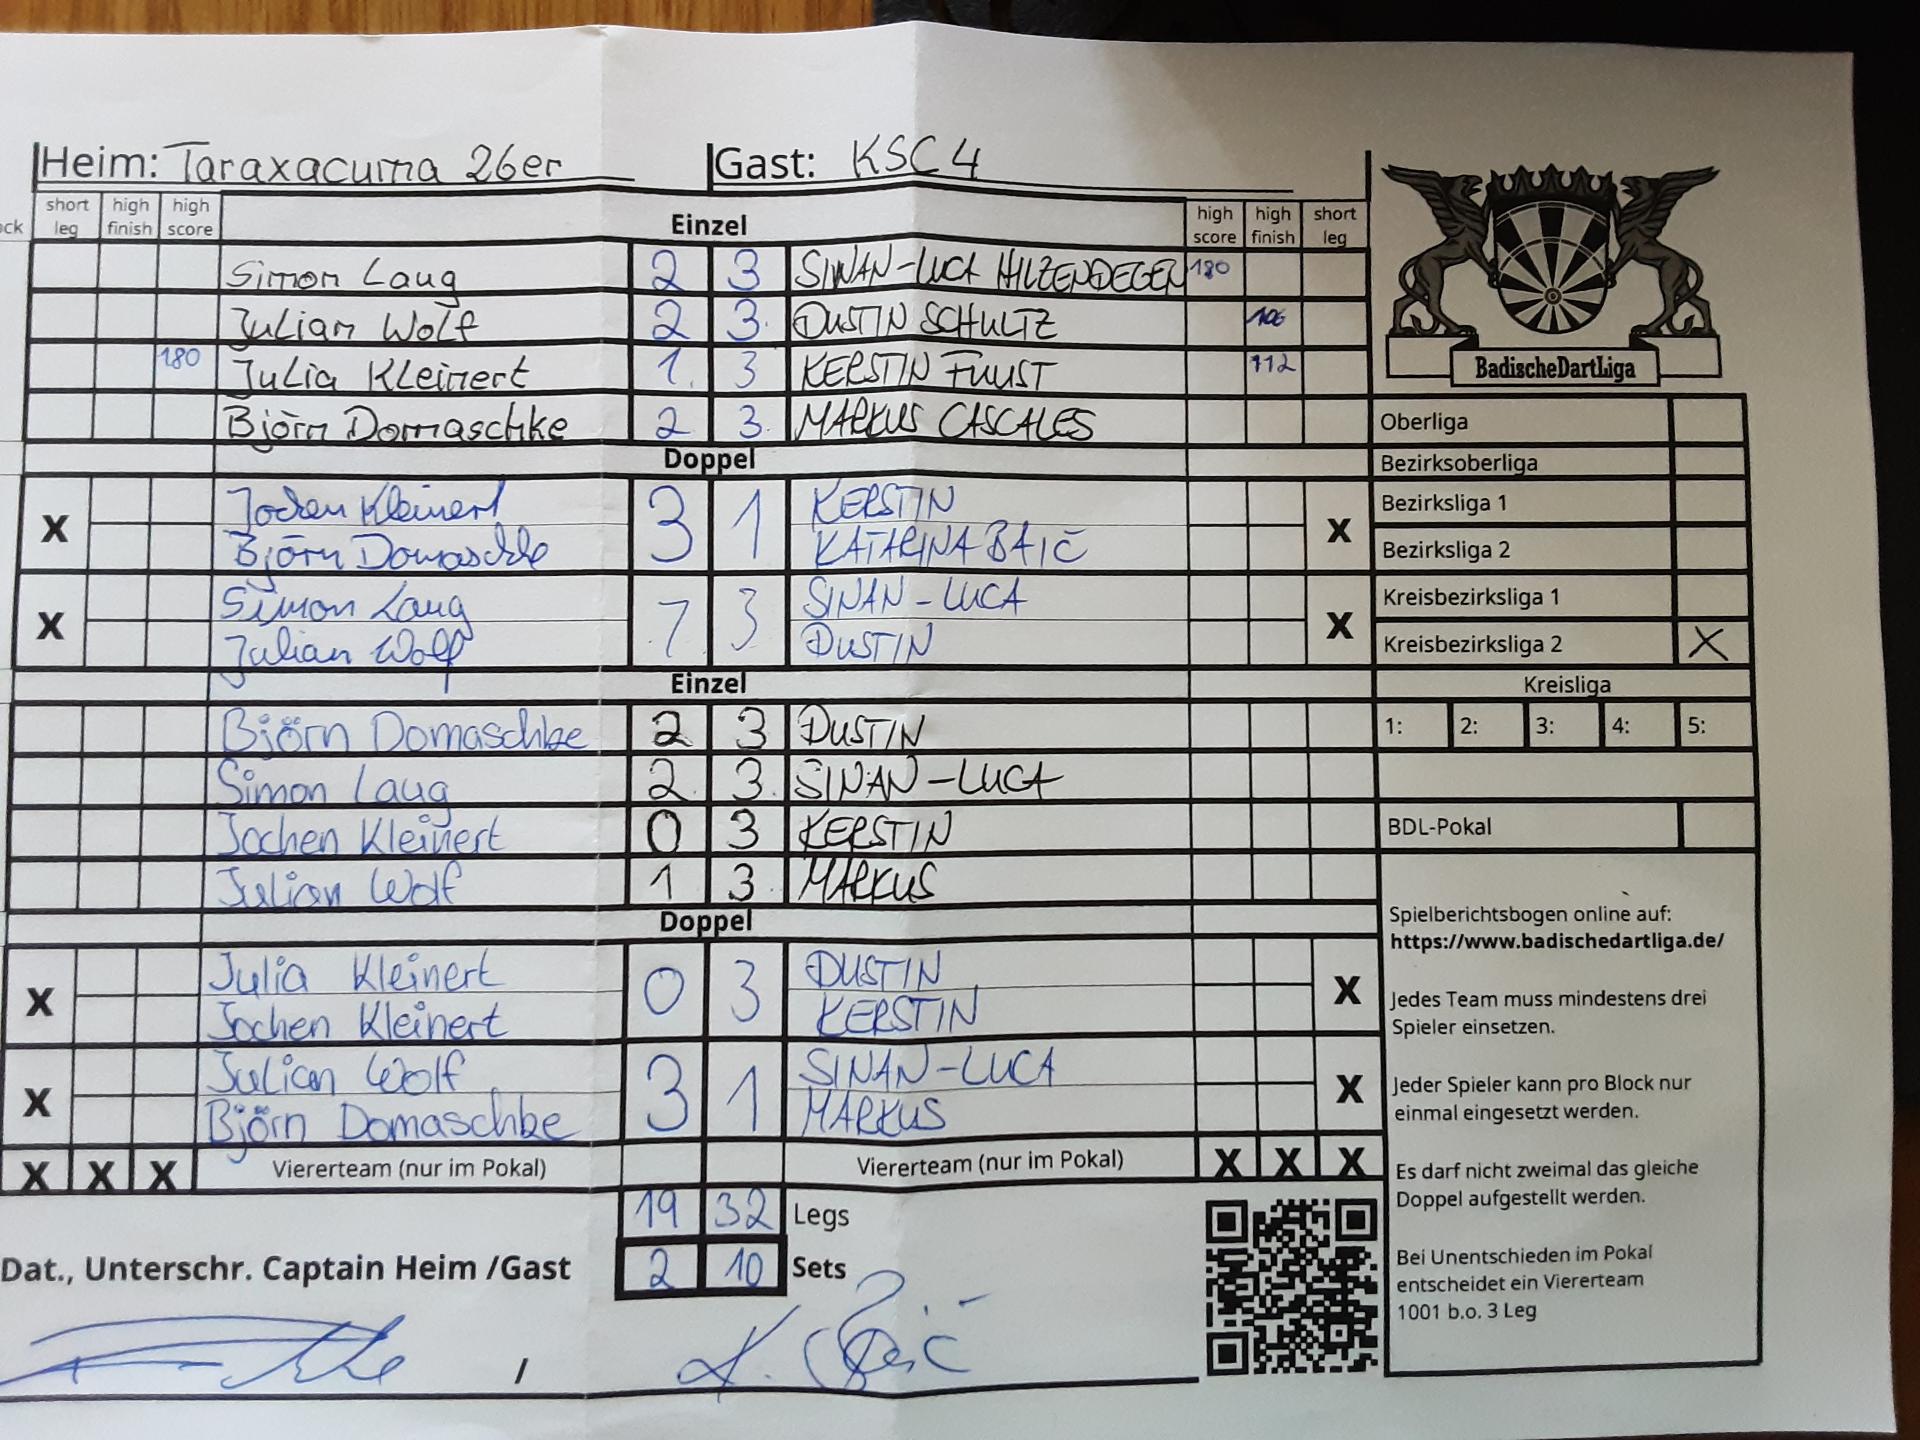 Heim: Taraxacuma 26er Gast: KSC 4
ock short leg high finish high score Einzel high score high finish short leg
Simon Laug 2 3 SINAN-LUCA HILZENDEGEN 180
Julian Wolf 2 3 DUSTIN SCHULTZ 106
180 Julia Kleinert 1 3 KERSTIN 112
Björn Domaschke 2 3 MARKUS CASCALES
Doppel
X Jochen Kleinert 3 1 KERSTIN X
Björn Domaschke KATARINA BAIĆ
X Simon Laug 1 3 SINAN-LUCA X
Julian Wolf DUSTIN
Einzel
Björn Domaschke 2 3 DUSTIN
Simon Laug 2 3 SINAN-LUCA
Jochen Kleinert 0 3 KERSTIN
Julian Wolf 1 3 MARKUS
Doppel
X Julia Kleinert 0 3 DUSTIN X
Jochen Kleinert KERSTIN
X Julian Wolf 3 1 SINAN-LUCA X
Björn Domaschke MARKUS
X X X Viererteam (nur im Pokal) Viererteam (nur im Pokal) X X X
19 32 Legs
2 10 Sets
Dat., Unterschr. Captain Heim /Gast
/
BadischeDartLiga
Oberliga
Bezirksoberliga
Bezirksliga 1
Bezirksliga 2
Kreisbezirksliga 1
Kreisbezirksliga 2 X
Kreisliga
1: 2: 3: 4: 5:
BDL-Pokal
Spielberichtsbogen online auf:
https://www.badischedartliga.de/
Jedes Team muss mindestens drei
Spieler einsetzen.
Jeder Spieler kann pro Block nur
einmal eingesetzt werden.
Es darf nicht zweimal das gleiche
Doppel aufgestellt werden.
Bei Unentschieden im Pokal
entscheidet ein Viererteam
1001 b.o. 3 Leg